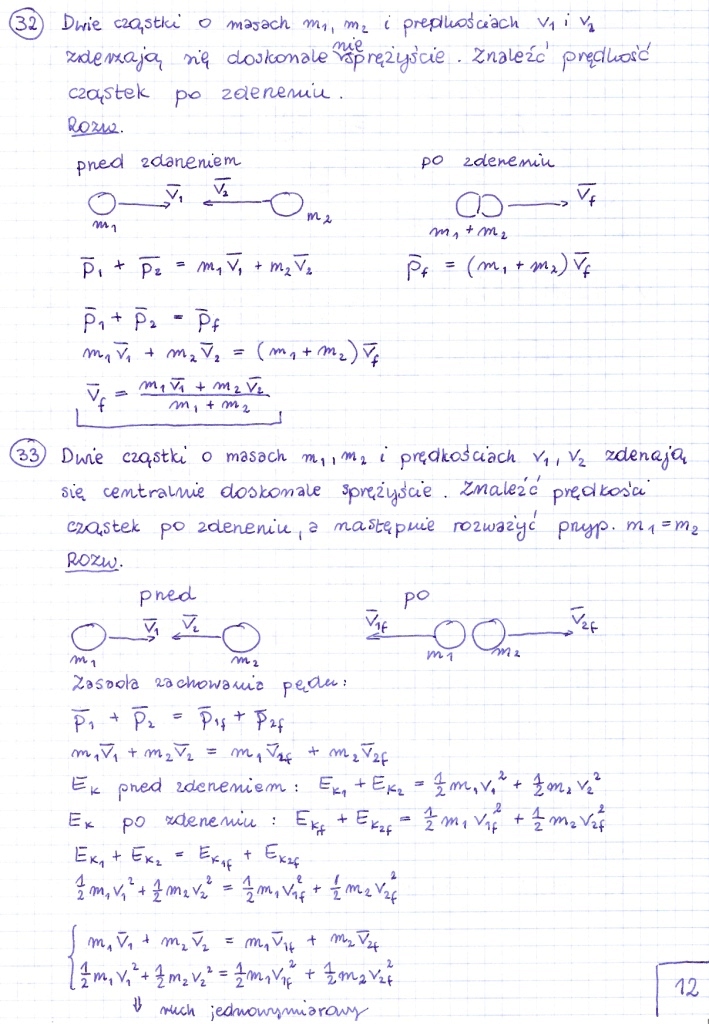 32 Dwie cząstki o masach m₁, m₂ i prędkościach v₁ i v₂
zderzają się doskonale niesprężyście. Znaleźć prędkość
cząstek po zderzeniu.
Rozw.
przed zderzeniem po zderzeniu
v̅₁ v̅₂ v̅f
m₁ m₂ m₁ + m₂
p̅₁ + p̅₂ = m₁v̅₁ + m₂v̅₂ p̅f = (m₁ + m₂) v̅f
p̅₁ + p̅₂ = p̅f
m₁v̅₁ + m₂v̅₂ = (m₁ + m₂) v̅f
v̅f = (m₁v̅₁ + m₂v̅₂) / (m₁ + m₂)
33 Dwie cząstki o masach m₁, m₂ i prędkościach v₁, v₂ zderzają
się centralnie doskonale sprężyście. Znaleźć prędkości
cząstek po zderzeniu, a następnie rozważyć przyp. m₁ = m₂
Rozw.
przed po
v̅₁ v̅₂ v̅1f v̅2f
m₁ m₂ m₁ m₂
Zasada zachowania pędu:
p̅₁ + p̅₂ = p̅1f + p̅2f
m₁v̅₁ + m₂v̅₂ = m₁v̅1f + m₂v̅2f
Eκ przed zderzeniem: Eκ₁ + Eκ₂ = ½m₁v₁² + ½m₂v₂²
Eκ po zderzeniu: Eκf + Eκ2f = ½m₁v1f² + ½m₂v2f²
Eκ₁ + Eκ₂ = Eκ1f + Eκ2f
½m₁v₁² + ½m₂v₂² = ½m₁v1f² + ½m₂v2f²
{ m₁v̅₁ + m₂v̅₂ = m₁v̅1f + m₂v̅2f
½m₁v₁² + ½m₂v₂² = ½m₁v1f² + ½m₂v2f²
⇓ ruch jednowymiarowy
12